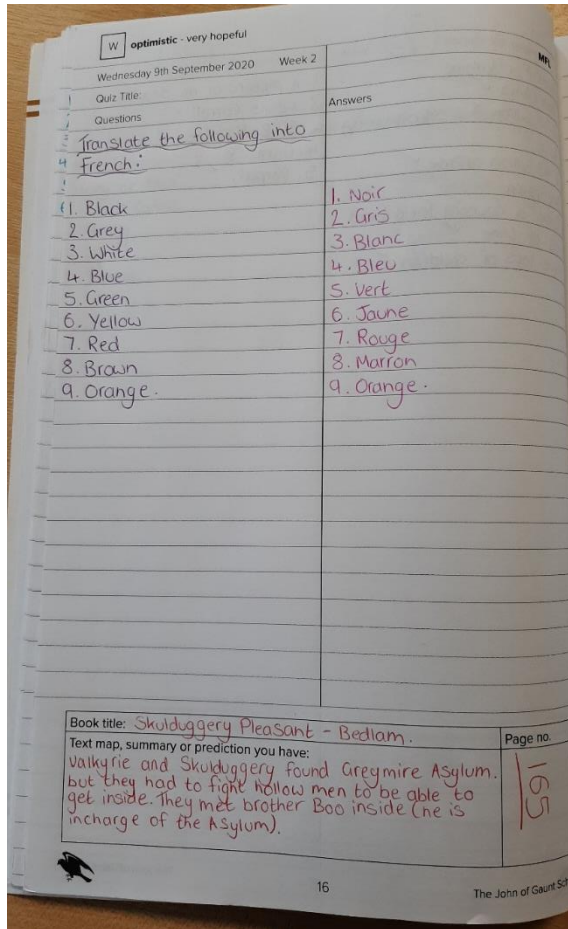 W optimistic - very hopeful
Wednesday 9th September 2020 Week 2
MFL
Quiz Title:
Questions
Answers
Translate the following into
French:
1. Black
2. Grey
3. White
4. Blue
5. Green
6. Yellow
7. Red
8. Brown
9. Orange.
1. Noir
2. Gris
3. Blanc
4. Bleu
5. Vert
6. Jaune
7. Rouge
8. Marron
9. Orange.
Book title: Skulduggery Pleasant - Bedlam.
Text map, summary or prediction you have:
Valkyrie and Skulduggery found Greymire Asylum.
but they had to fight hollow men to be able to
get inside. They met brother Boo inside (he is
incharge of the Asylum).
Page no.
165
16
The John of Gaunt Sch